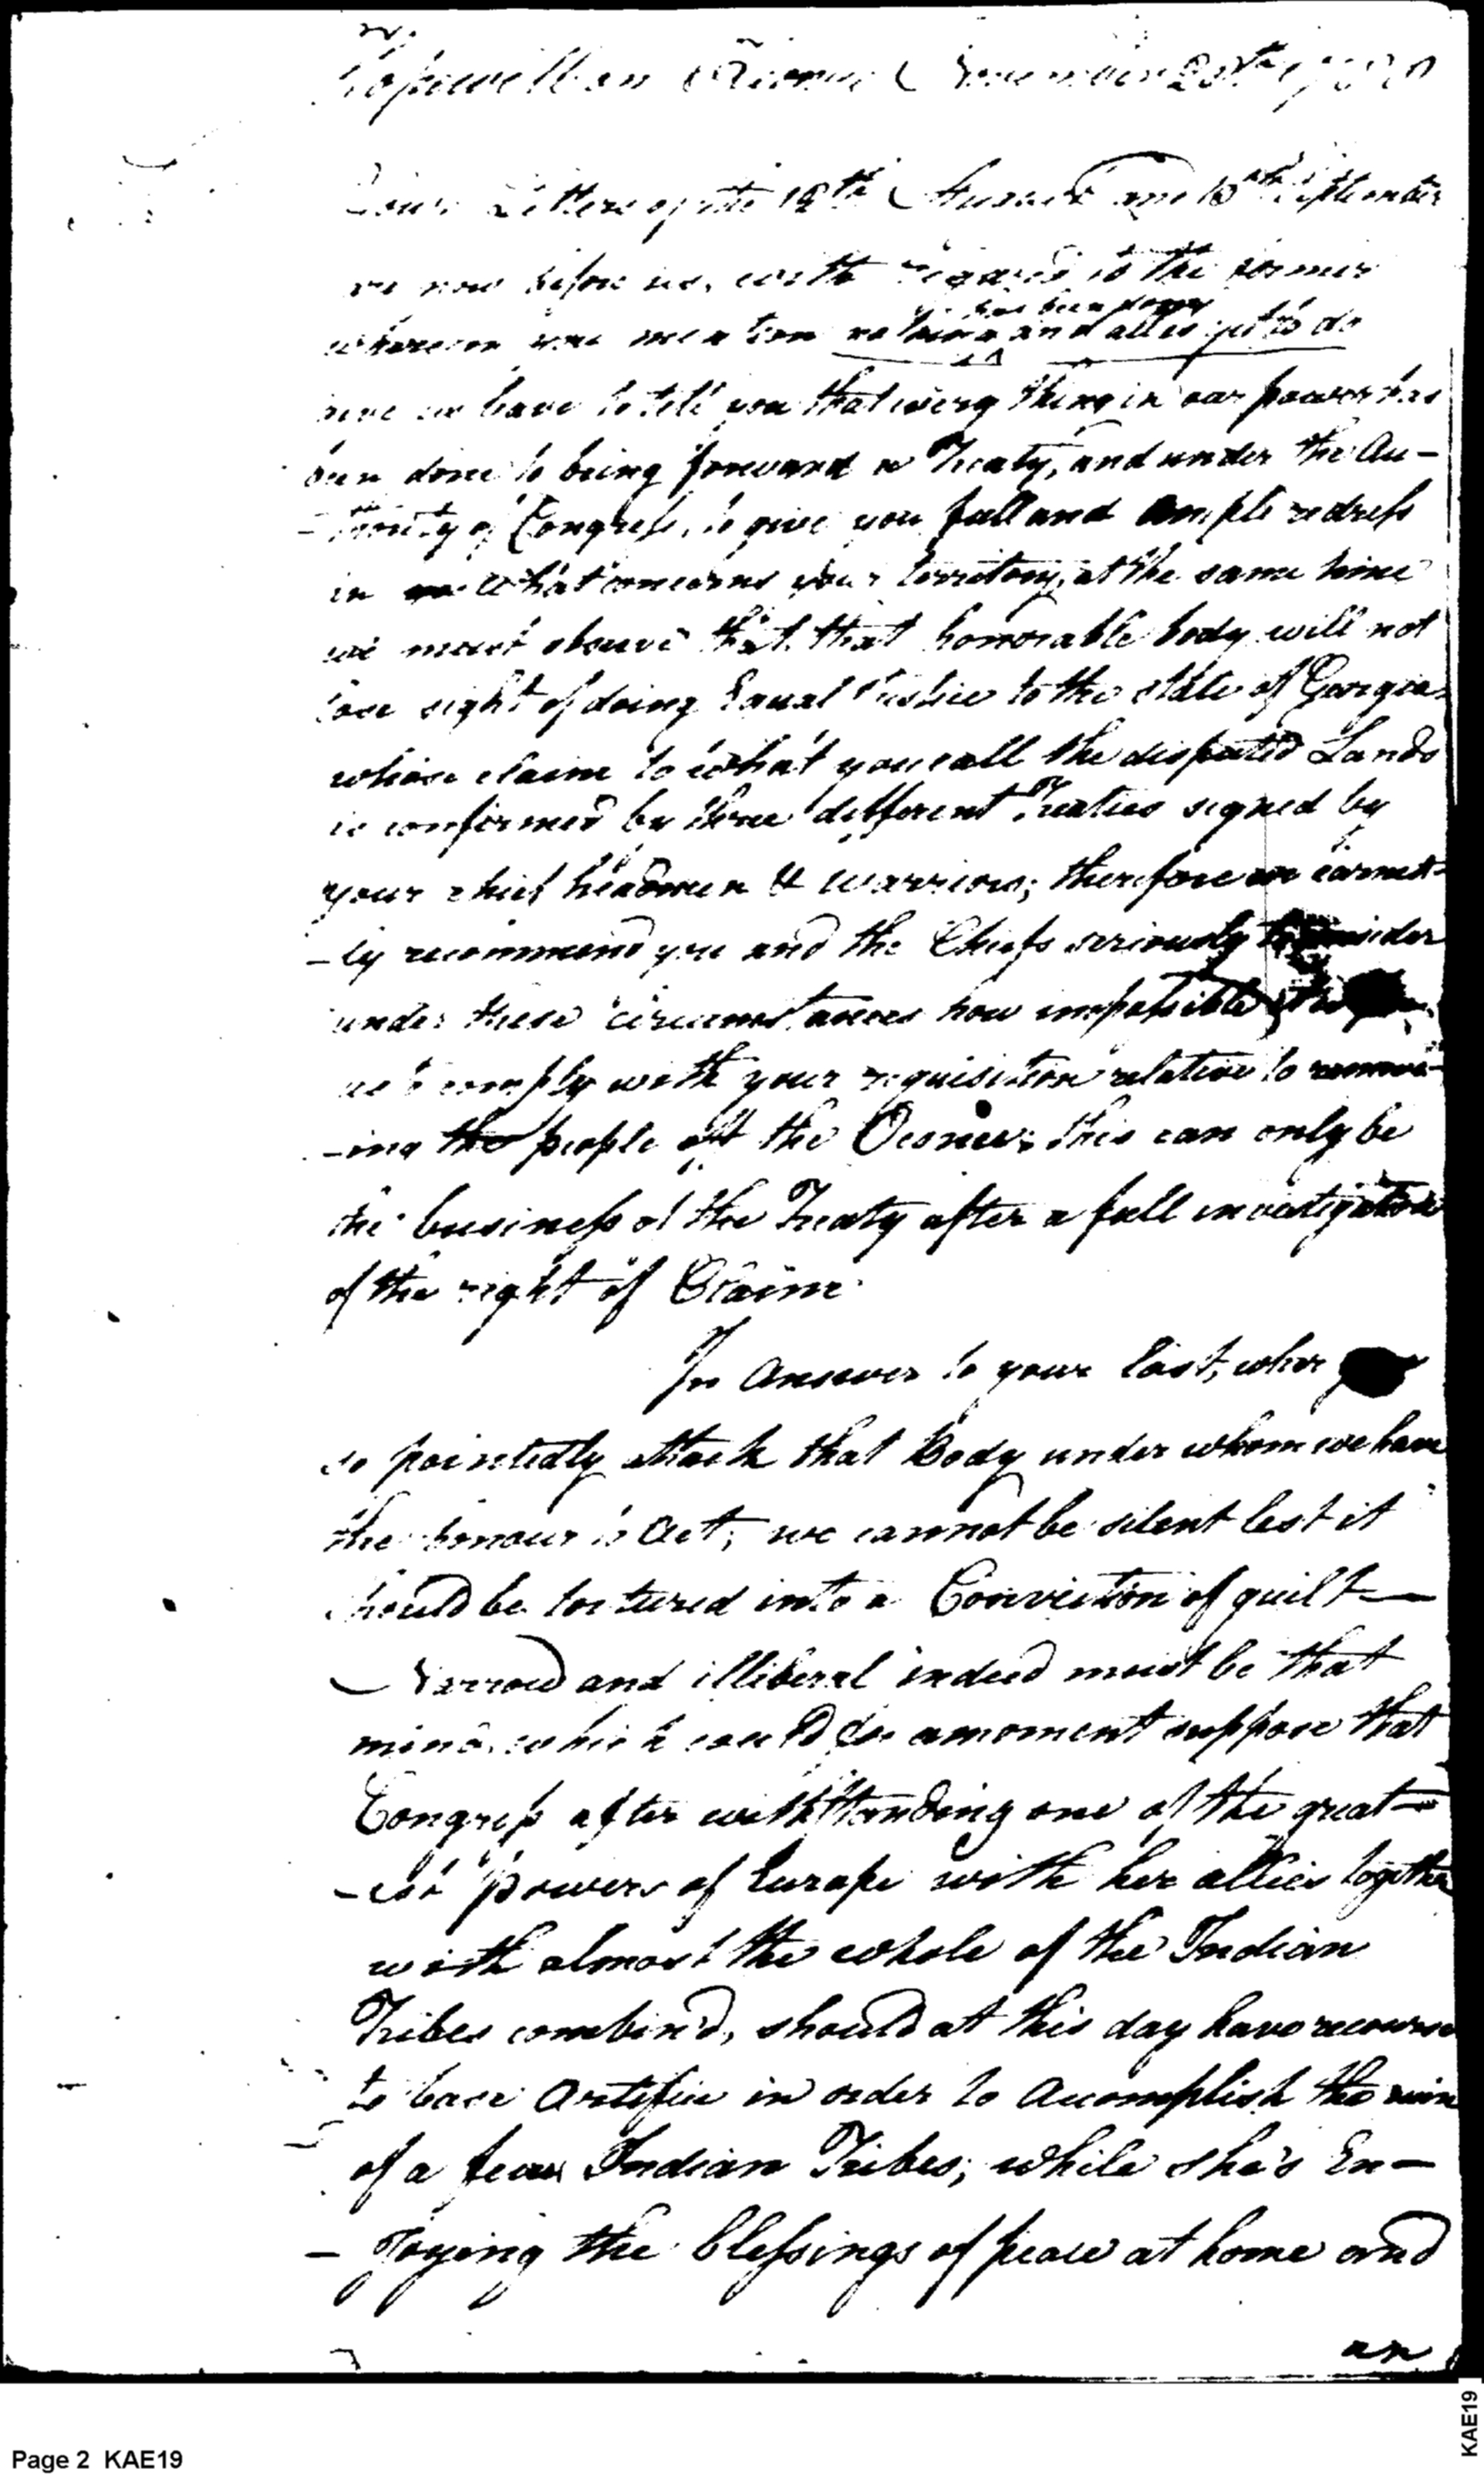 Hopewell on Keowee November 28th
Your Letters of the 12th August and 13th September
are now before us, with regard to the former
has been done
wherein you mention nothing and all is yet to do
here we have to tell you that every thing in our power has
been done to bring forward a Treaty, and under the Au-
-thority of Congress, to give you full and ample redress
in what concerns your territory, at the same time
we must observe that that honorable body will not
lose sight of doing Equal Justice to the state of Georgia
whose claim to what you call the disputed Lands
is confirmed by three different Treaties signed by
your chief headmen & warriors; therefore we earnest-
-ly recommend you and the Chiefs seriously to consider
under these circumstances how impossible
us to comply with your requisition relative to remov-
-ing the people off the Oconee; this can only be
the business of the Treaty after a full investigation
of the right of Claim
In answer to your last, wher
so pointedly attack that Body under whom we have
the honour to Act; we cannot be silent lest it
should be tortured into a Conviction of guilt—
—Narrow and illiberal indeed must be that
mind which could for a moment suppose that
Congress after withstanding one of the great-
-est powers of Europe with her allies together
with almost the whole of the Indian
Tribes combin'd, should at this day have recourse
to base Artifice in order to Accomplish the ruin
of a few Indian Tribes; while she's En-
-joying the blessings of peace at home and
an
Page 2 KAE19
KAE19